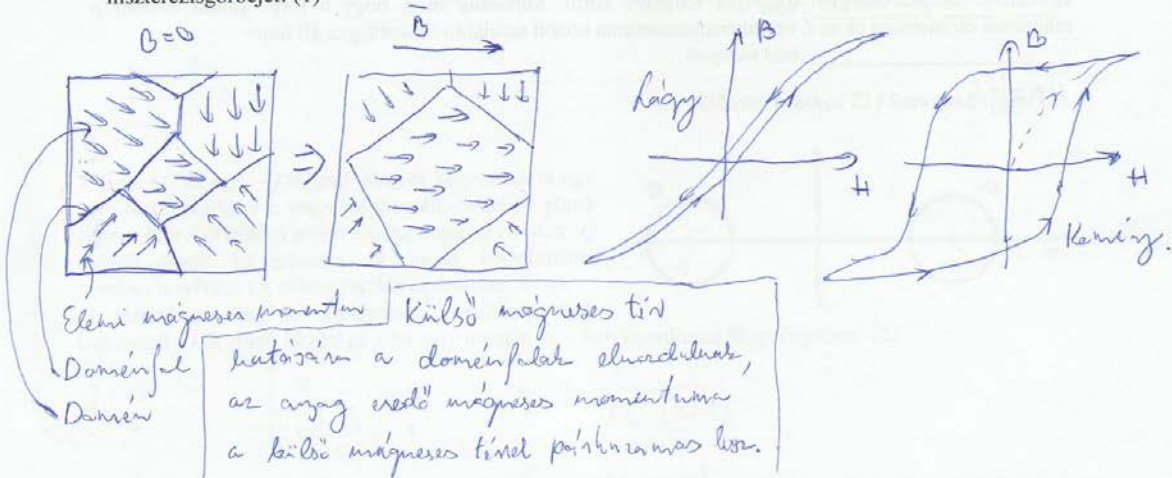 hiszterézisgörbéjét. (4)
B=0
B
B
Lágy
H
B
H
Kemény.
Elemi mágneses momentum
Doménfal
Domén
Külső mágneses tér
hatására a doménfalak elmozdulnak,
az anyag eredő mágneses momentuma
a külső mágneses térrel párhuzamos lesz.